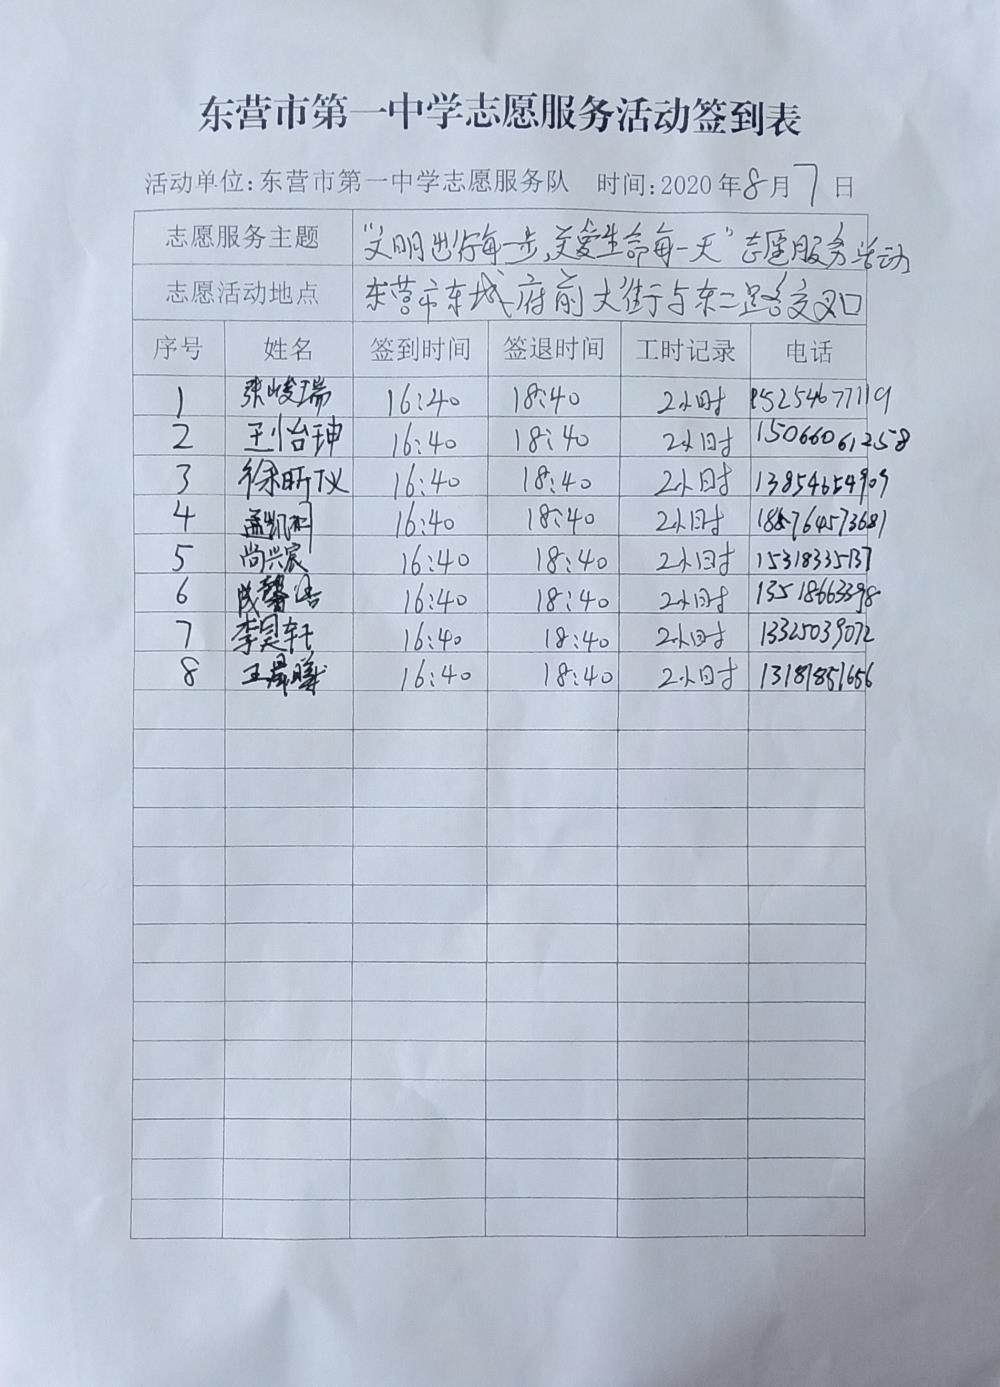 东营市第一中学志愿服务活动签到表
活动单位:东营市第一中学志愿服务队 时间:2020年8月7日
志愿服务主题 “文明出行每一步,关爱生命每一天”志愿服务活动
志愿活动地点 东营市东城府前大街与东二路交叉口
序号 姓名 签到时间 签退时间 工时记录 电话
1 张峻瑞 16:40 18:40 2小时 15254677119
2 王怡珅 16:40 18:40 2小时 15066061258
3 徐昕仪 16:40 18:40 2小时 13854654909
4 孟凯 16:40 18:40 2小时
5 尚兴宸 16:40 18:40 2小时 15318335137
6 16:40 18:40 2小时 13518663398
7 李昊轩 16:40 18:40 2小时 13325039072
8 王晨曦 16:40 18:40 2小时 13181851656